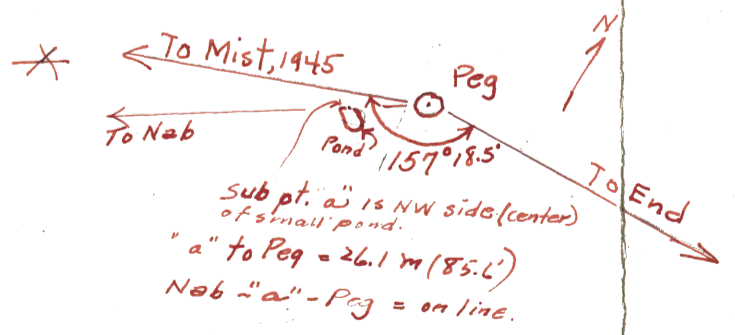 N
To Mist, 1945
Peg
To Nab
Pond
157° 18.5'
To End
Sub pt. "a" is NW side (center)
of small pond.
"a" to Peg = 26.1 m (85.6')
Nab - "a" - Peg = on line.